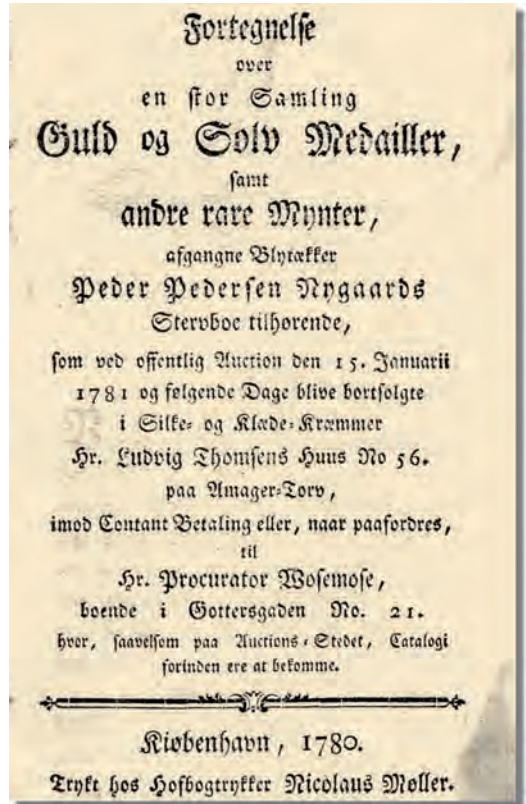 Fortegnelse
over
en stor Samling
Guld og Sølv Medailler,
samt
andre rare Mynter,
afgangne Blytækker
Peder Pedersen Nygaards
Stervboe tilhørende,
som ved offentlig Auction den 15. Januarii
1781 og følgende Dage blive bortsolgte
i Silke- og Klæde-Kræmmer
Hr. Ludvig Thomsens Huus No 56.
paa Amager-Torv,
imod Contant Betaling eller, naar paafordres,
til
Hr. Procurator Wosemose,
boende i Gottersgaden No. 21.
hvor, saavelsom paa Auctions-Stedet, Catalogi
forinden ere at bekomme.
Kiøbenhavn, 1780.
Trykt hos Hofbogtrykker Nicolaus Møller.